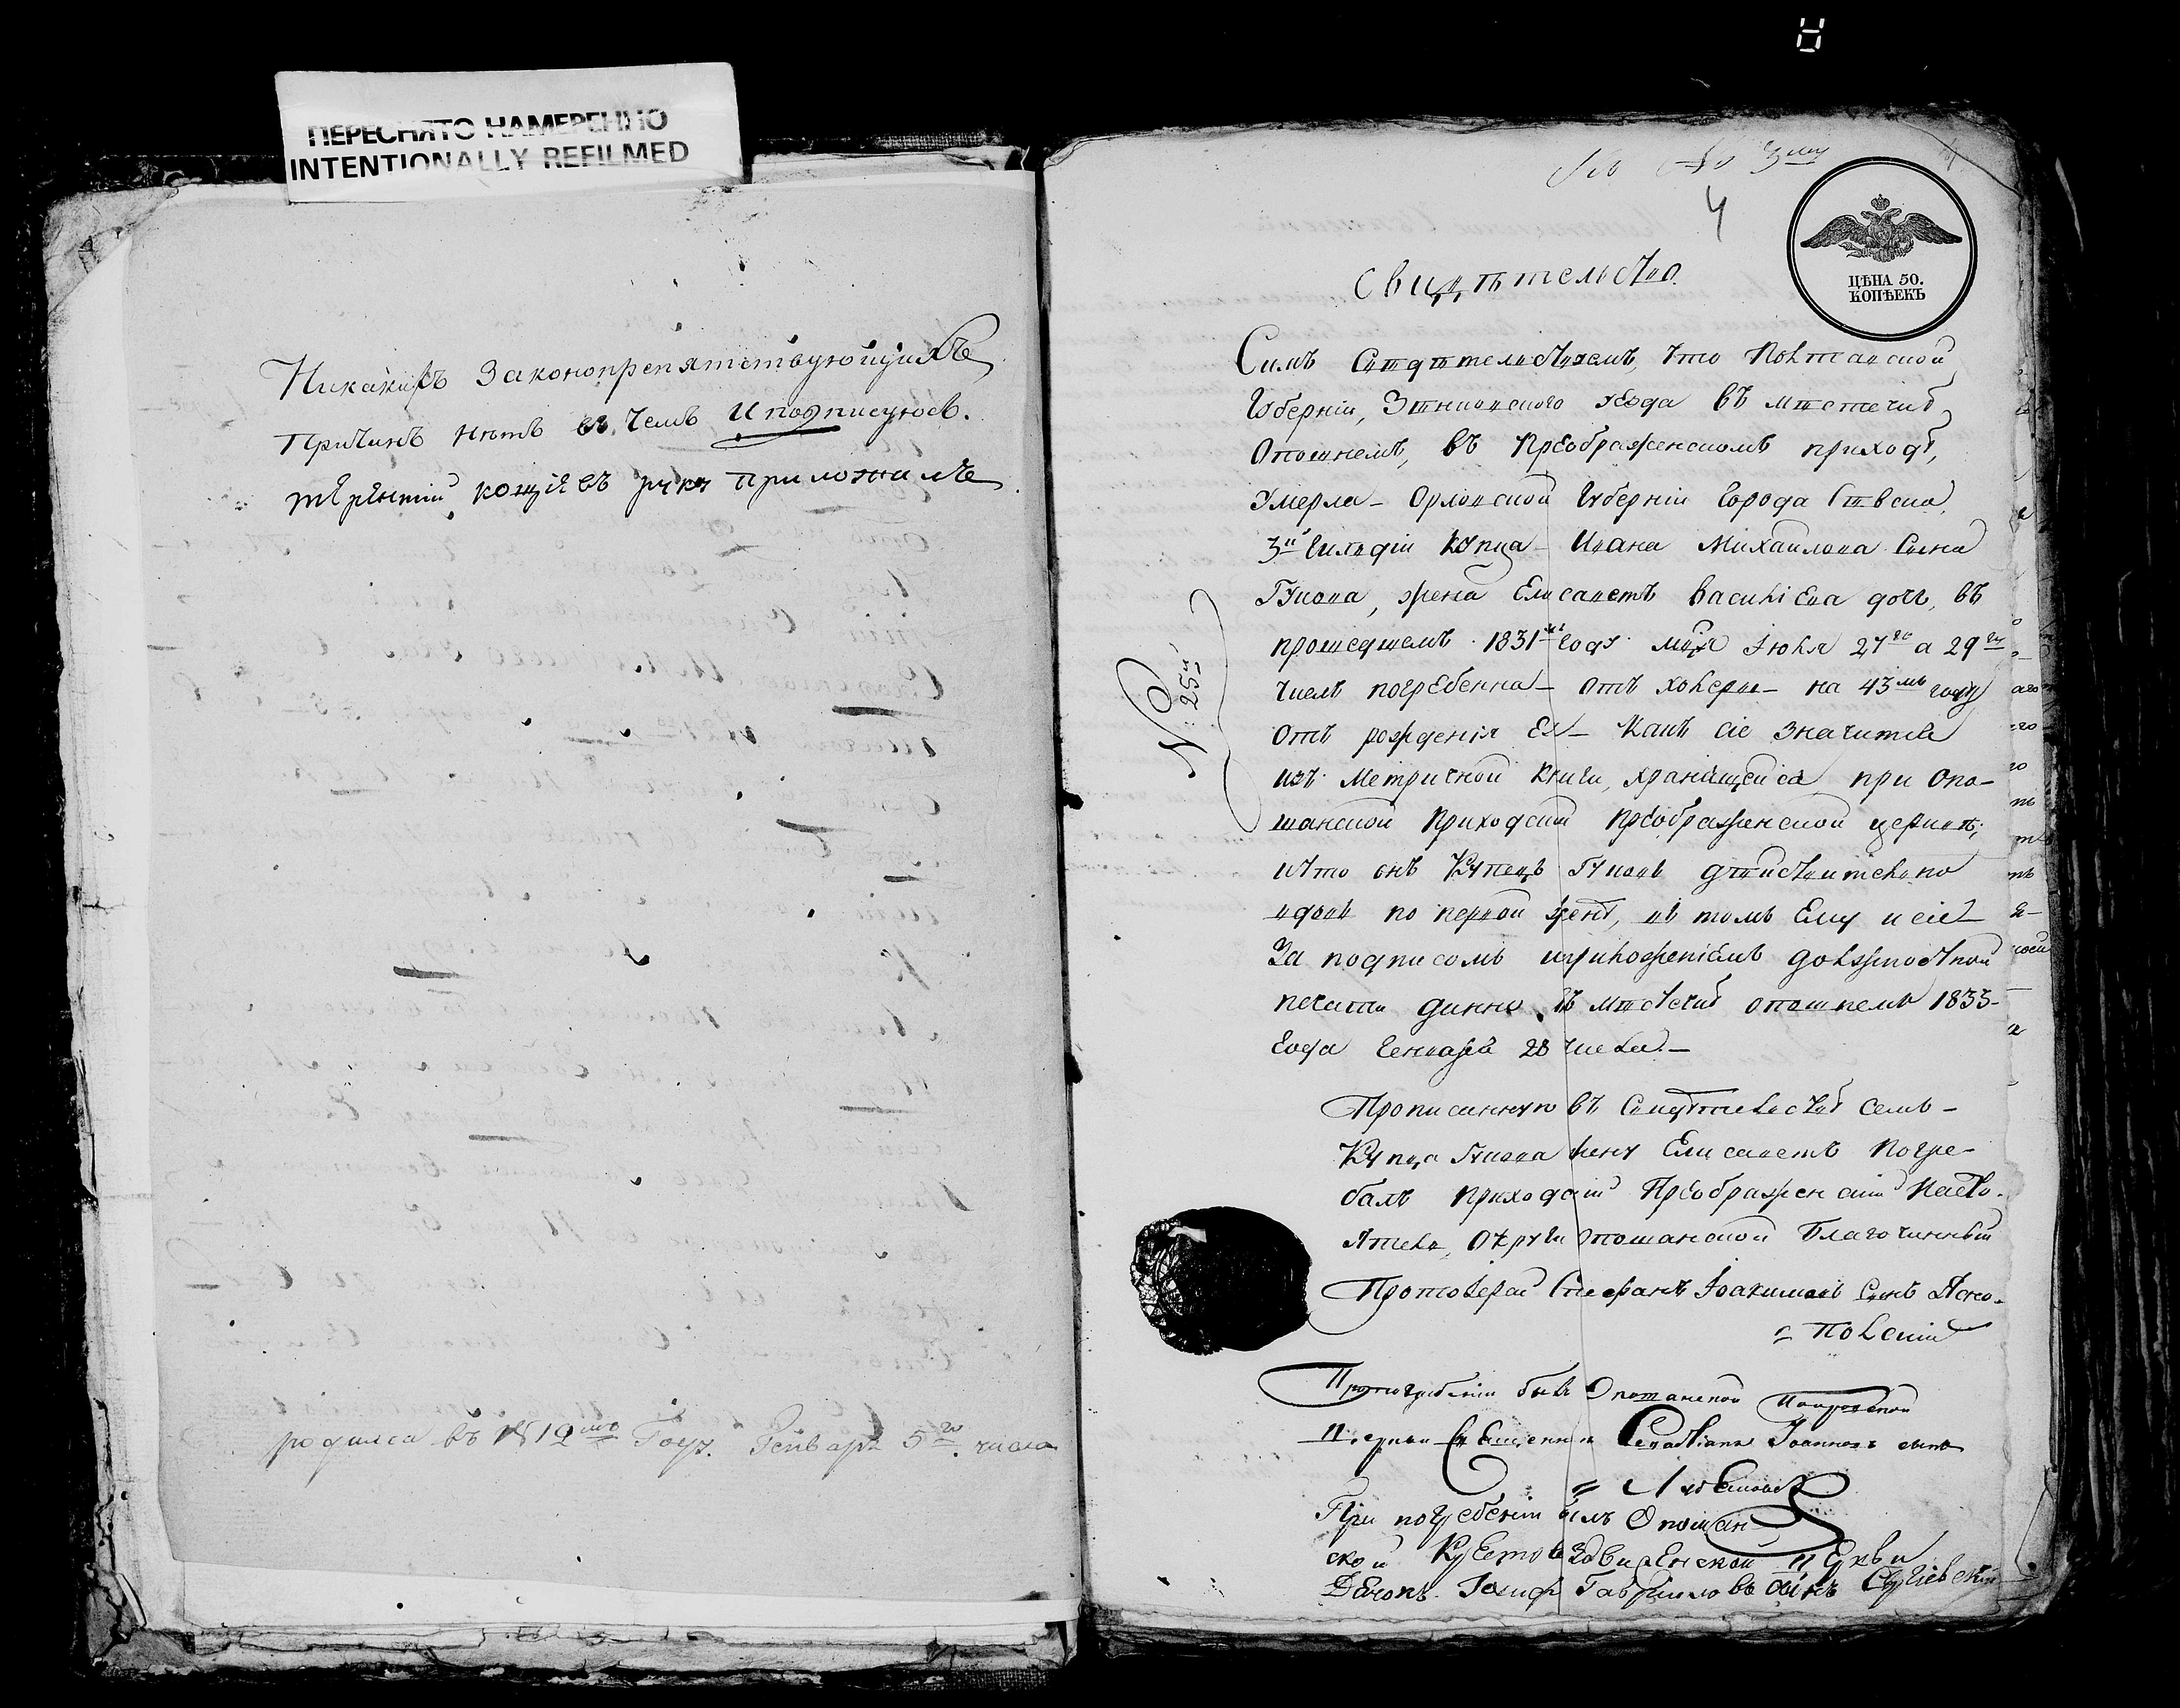 ПЕРЕСНЯТО НАМЕРЕННО
INTENTIONALLY REFILMED
Никакихъ законопрепятствующихъ
причинъ нѣтъ въ чемъ и подписуюсь.
руку приложилъ
родился въ 1812мъ Году. Генваря 5го числа
4
ЦѢНА 50.
КОПѢЕКЪ
Свидѣтельство
Симъ Свидѣтельствуемъ, что Полтавской
Губерніи, Зѣнковского уѣзда въ мѣстечкѣ
Опошнемъ, въ Преображенскомъ приходѣ,
Умерла Орловской Губерніи Города Сѣвска,
3й Гильдіи Купца Ивана Михайлова Сына
Гукова, жена Елисаветъ Василіева дочь, въ
прошедшемъ 1831мъ году мця Іюля 27го а 29го
числъ погребенна отъ холеры на 43мъ году
отъ рожденія Ея Какъ сіе значится
изъ Метричной Книги, хранящейся при Опо-
шанской Приходской Преображенской церквѣ;
и что онъ Купецъ Гуковъ дѣйствительно
вдовъ по первой женѣ, въ томъ Ему и сіе
За подписомъ и приложеніемъ должностной
печати данно въ мѣстечкѣ опошнемъ 1833
Года Генваря 28 числа.
№ 25й
Прописанную въ Свидѣтельствѣ семъ
Купца Гукова жену Елисаветъ Погре-
балъ приходскій Преображенскій Насто-
ятель, Округи опошанской Благочинный
Протоіерей Стефанъ Іоакимовъ Сынъ Ясно-
= польскій
При погребеніи былъ Опошанской Покровской
Церкви Священникъ Севастіанъ Іоанновъ сынъ
При погребеніи былъ Опошан-
ской Крестовоздвиженской Церкви
Діаконъ Іосифъ Гавріиловъ сынъ